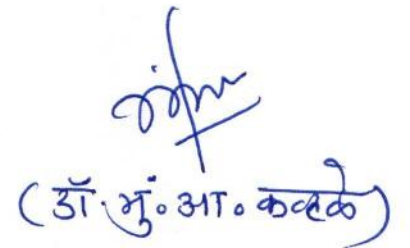 (डॉ. मुं. आ. कव्हळे)